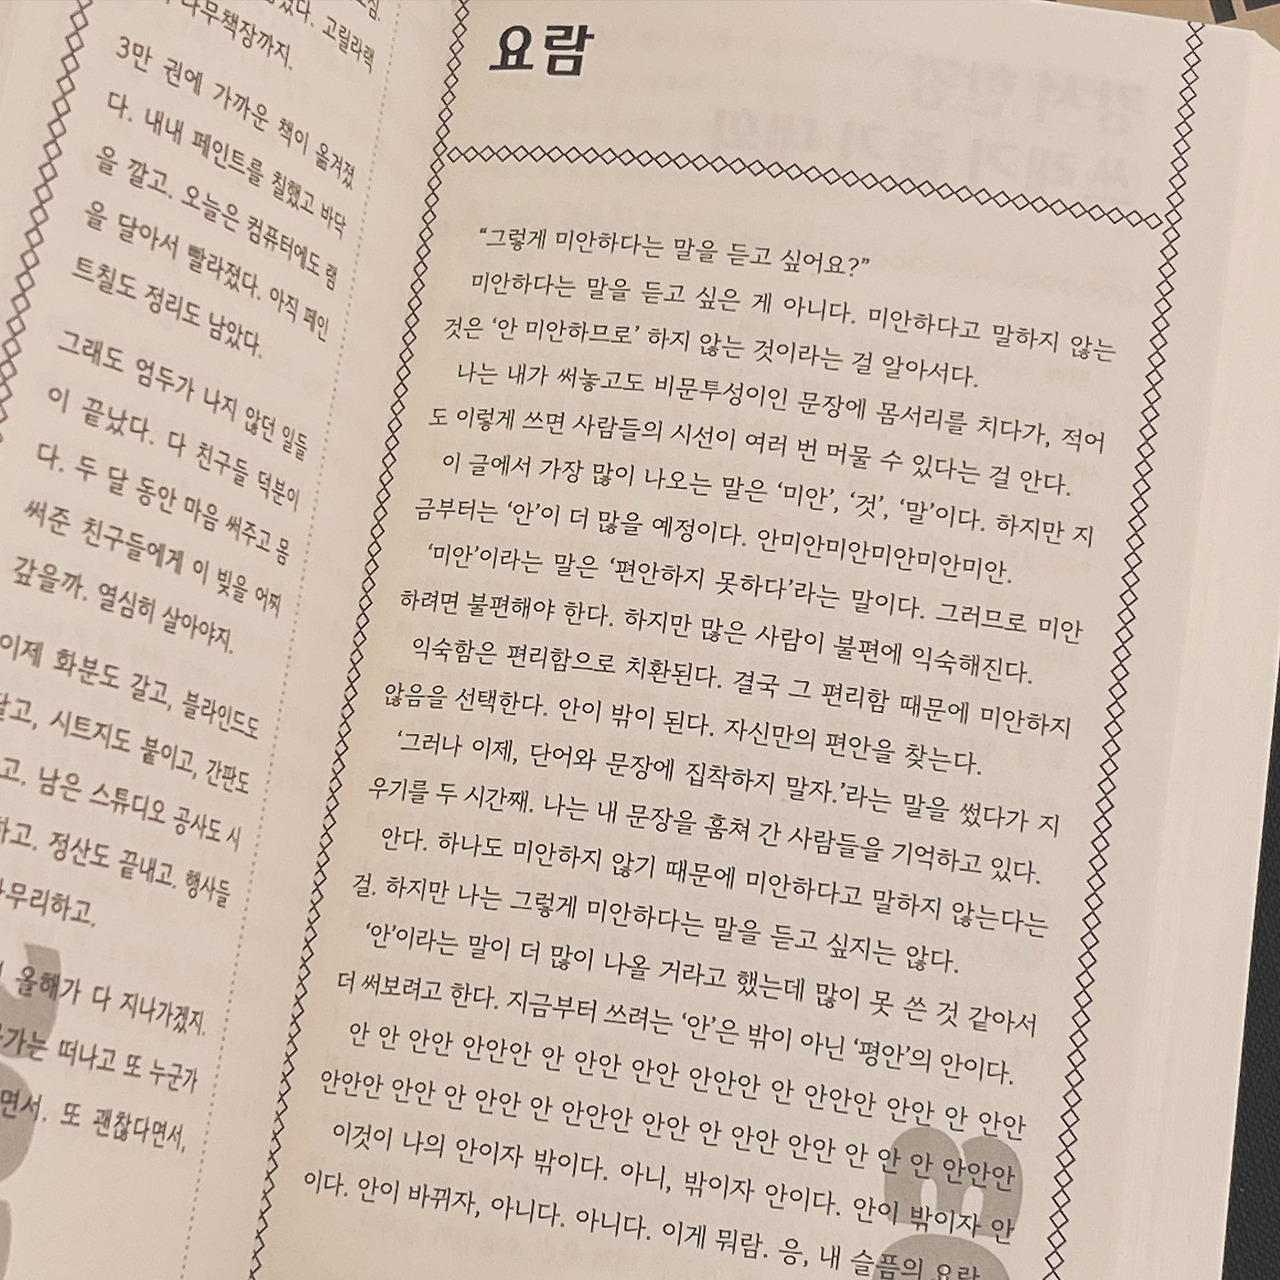 고릴라랙
나무책장까지.
3만 권에 가까운 책이 옮겨졌
다. 내내 페인트를 칠했고 바닥
을 깔고. 오늘은 컴퓨터에도 램
을 달아서 빨라졌다. 아직 페인
트칠도 정리도 남았다.
그래도 엄두가 나지 않던 일들
이 끝났다. 다 친구들 덕분이
다. 두 달 동안 마음 써주고 몸
써준 친구들에게 이 빚을 어찌
갚을까. 열심히 살아야지.
이제 화분도 갈고, 블라인드도
달고, 시트지도 붙이고, 간판도
고. 남은 스튜디오 공사도 시
하고. 정산도 끝내고. 행사들
마무리하고.
올해가 다 지나가겠지.
떠나고 또 누군가
면서. 또 괜찮다면서,
요람
“그렇게 미안하다는 말을 듣고 싶어요?”
미안하다는 말을 듣고 싶은 게 아니다. 미안하다고 말하지 않는
것은 ‘안 미안하므로’ 하지 않는 것이라는 걸 알아서다.
나는 내가 써놓고도 비문투성이인 문장에 몸서리를 치다가, 적어
도 이렇게 쓰면 사람들의 시선이 여러 번 머물 수 있다는 걸 안다.
이 글에서 가장 많이 나오는 말은 ‘미안’, ‘것’, ‘말’이다. 하지만 지
금부터는 ‘안’이 더 많을 예정이다. 안미안미안미안미안미안.
‘미안’이라는 말은 ‘편안하지 못하다’라는 말이다. 그러므로 미안
하려면 불편해야 한다. 하지만 많은 사람이 불편에 익숙해진다.
익숙함은 편리함으로 치환된다. 결국 그 편리함 때문에 미안하지
않음을 선택한다. 안이 밖이 된다. 자신만의 편안을 찾는다.
‘그러나 이제, 단어와 문장에 집착하지 말자.’라는 말을 썼다가 지
우기를 두 시간째. 나는 내 문장을 훔쳐 간 사람들을 기억하고 있다.
안다. 하나도 미안하지 않기 때문에 미안하다고 말하지 않는다는
걸. 하지만 나는 그렇게 미안하다는 말을 듣고 싶지는 않다.
‘안’이라는 말이 더 많이 나올 거라고 했는데 많이 못 쓴 것 같아서
더 써보려고 한다. 지금부터 쓰려는 ‘안’은 밖이 아닌 ‘평안’의 안이다.
안 안 안안 안안안 안 안안 안안 안안안 안 안안안 안안 안 안안
안안안 안안 안 안안 안 안안안 안안 안 안안 안안 안 안 안 안안안
이것이 나의 안이자 밖이다. 아니, 밖이자 안이다. 안이 밖이자 안
이다. 안이 바뀌자, 아니다. 아니다. 이게 뭐람. 응, 내 슬픔의 요람